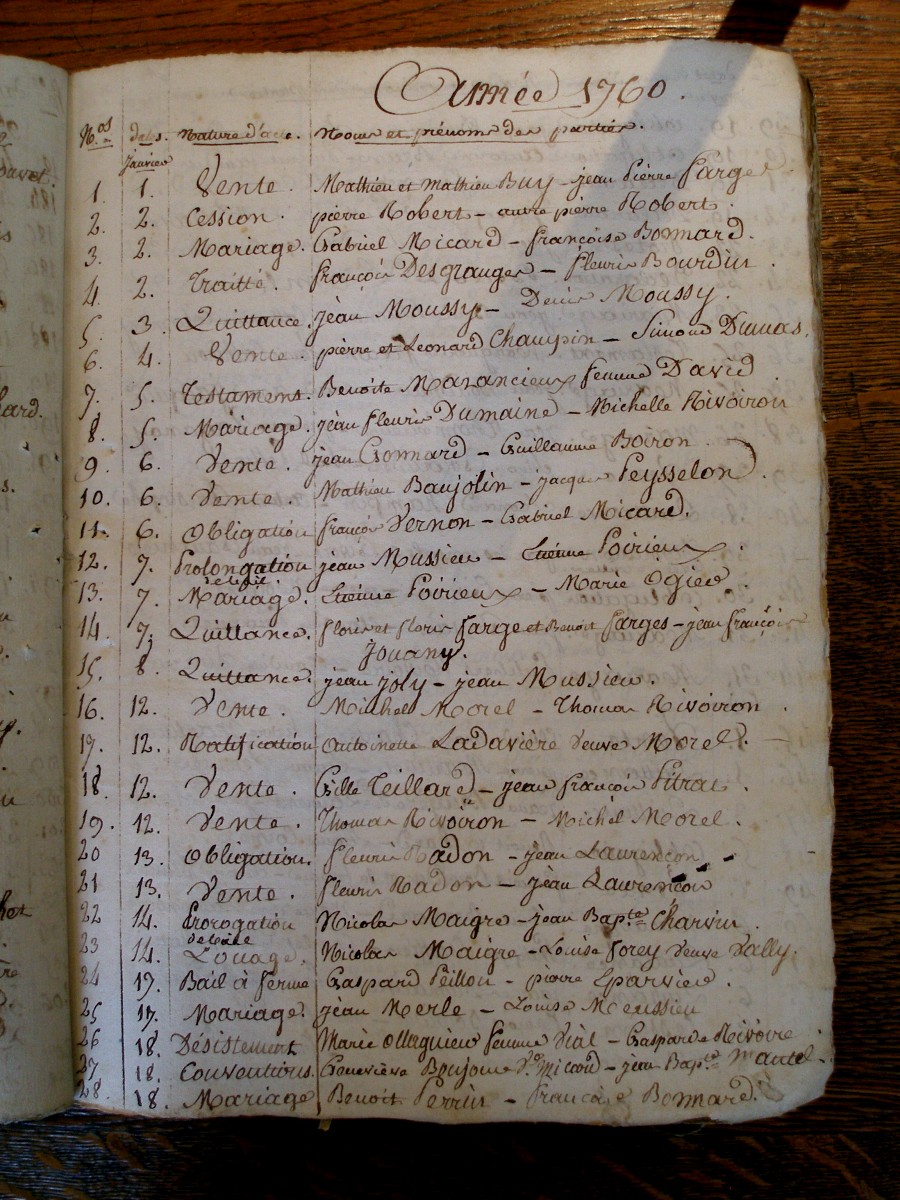 Année 1760.
N.os dates. Nature d'acte. Noms et prénoms des parties.
Janvier
1. 1. Vente. Mathieu et Mathieu Buy - jean Pierre Farge
2. 2. Cession. pierre Robert - autre pierre Robert.
3. 2. Mariage. Gabriel Micard - françoise Bonnard.
4. 2. Traitté. françois Desgranges - fleurie Bourdin.
5. 3. Quittance. jean Moussy - Denis Moussy.
6. 4. Vente. pierre et Léonard Champin - Simond Dumas.
7. 5. Testament. Benoite Marancieux femme David
8. 5. Mariage. jean fleurie Dumaine - Michelle Rivoiron
9. 6. Vente. jean Gonnard - Guillaume Boiron.
10. 6. Vente. Mathieu Baujolin - jacques Peysselon.
11. 6. Obligation françois Vernon - Gabriel Micard.
12. 7. Prolongation jean Mussieu - Etienne Poirieux.
de
13. 7. Mariage. Etienne Poirieux - Marie Ogier.
14. 7. Quittance. floris et floris farge et Benoit farges - jean françois
Jouany.
15. 8. Quittance. jean joly - jean Mussieu.
16. 12. Vente. Michel Morel - Thomas Rivoiron.
17. 12. Ratification Antoinette Ladavière veuve Morel.
18. 12. Vente. Gille Teillard - jean françois Pitrat.
19. 12. Vente. Thomas Rivoiron - Michel Morel.
20 13. Obligation. fleurie Radon - jean Laurençon
21 13. Vente. fleurie Radon - jean Laurençon
22 14. Prorogation Nicolas Maigre - jean Bap.te Charvin.
de
23 14. Louage. Nicolas Maigre - Louise forey veuve Vally.
24 17. Bail à ferme Gaspard Peillon - pierre Eparvier.
25 17. Mariage. jean Merle - Louise Meussieu
26 18. Désistement Marie Ollagnier femme Vial - Gaspard Rivoire.
27 18. Conventions. Geneviève Boujour - jean Bap.te Martel.
28 18. Mariage Benoit Perrin - françoise Bonnard.